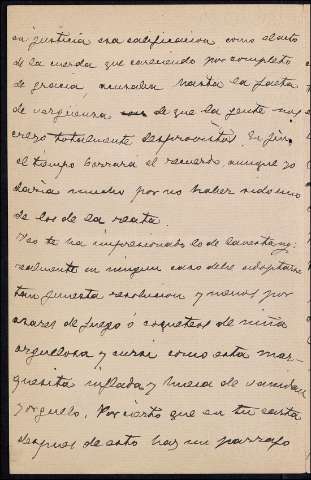 en justicia esa calificacion, como el acto
de la cuerda que careciendo por completo
de gracia, acusaban hasta la falta
de vergüenza de que la gente nos
creyó totalmente desprovistos. En fin,
el tiempo borrará el recuerdo aunque yo
daria mucho por no haber sido uno
de los de la reata.
Veo te ha impresionado lo de
realmente en ningun caso debe adoptarse
tan funesta resolucion y menos por
azares de juego ó coqueteos de niña
orgullosa y cursi como esta mar-
quesita inflada y hueca de vanidad
y orgullo. Por cierto que en tu carta
despues de esto hay un parrafo